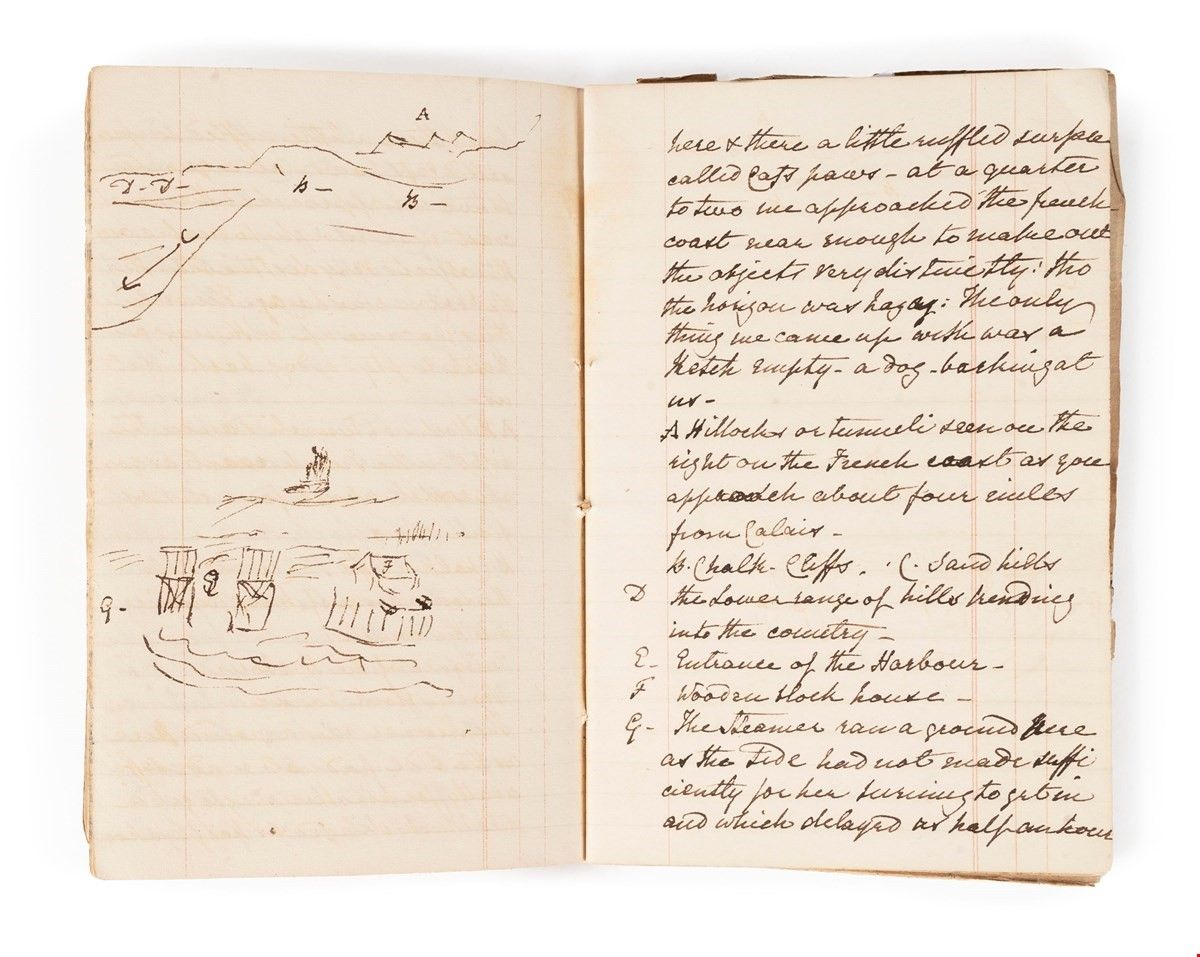 A
D - D -
B -
B -
C
E
F
G -
here & there a little ruffled surface
called Cats paws - at a quarter
to two we approached the french
coast near enough to make out
the objects very distinctly: tho
the horizon was hazy: The only
thing we came up with was a
Ketch empty - a dog - barking at
us -
A Hillocks or tumuli seen on the
right on the French coast as you
approach about four miles
from Calais -
B. Chalk - Cliffs. C. Sand hills
D the Lower range of hills trending
into the country -
E - Entrance of the Harbour -
F Wooden block house -
G - The Steamer ran a ground here
as the Tide had not made suffi
ciently for her to get in
and which delayed us half an hour